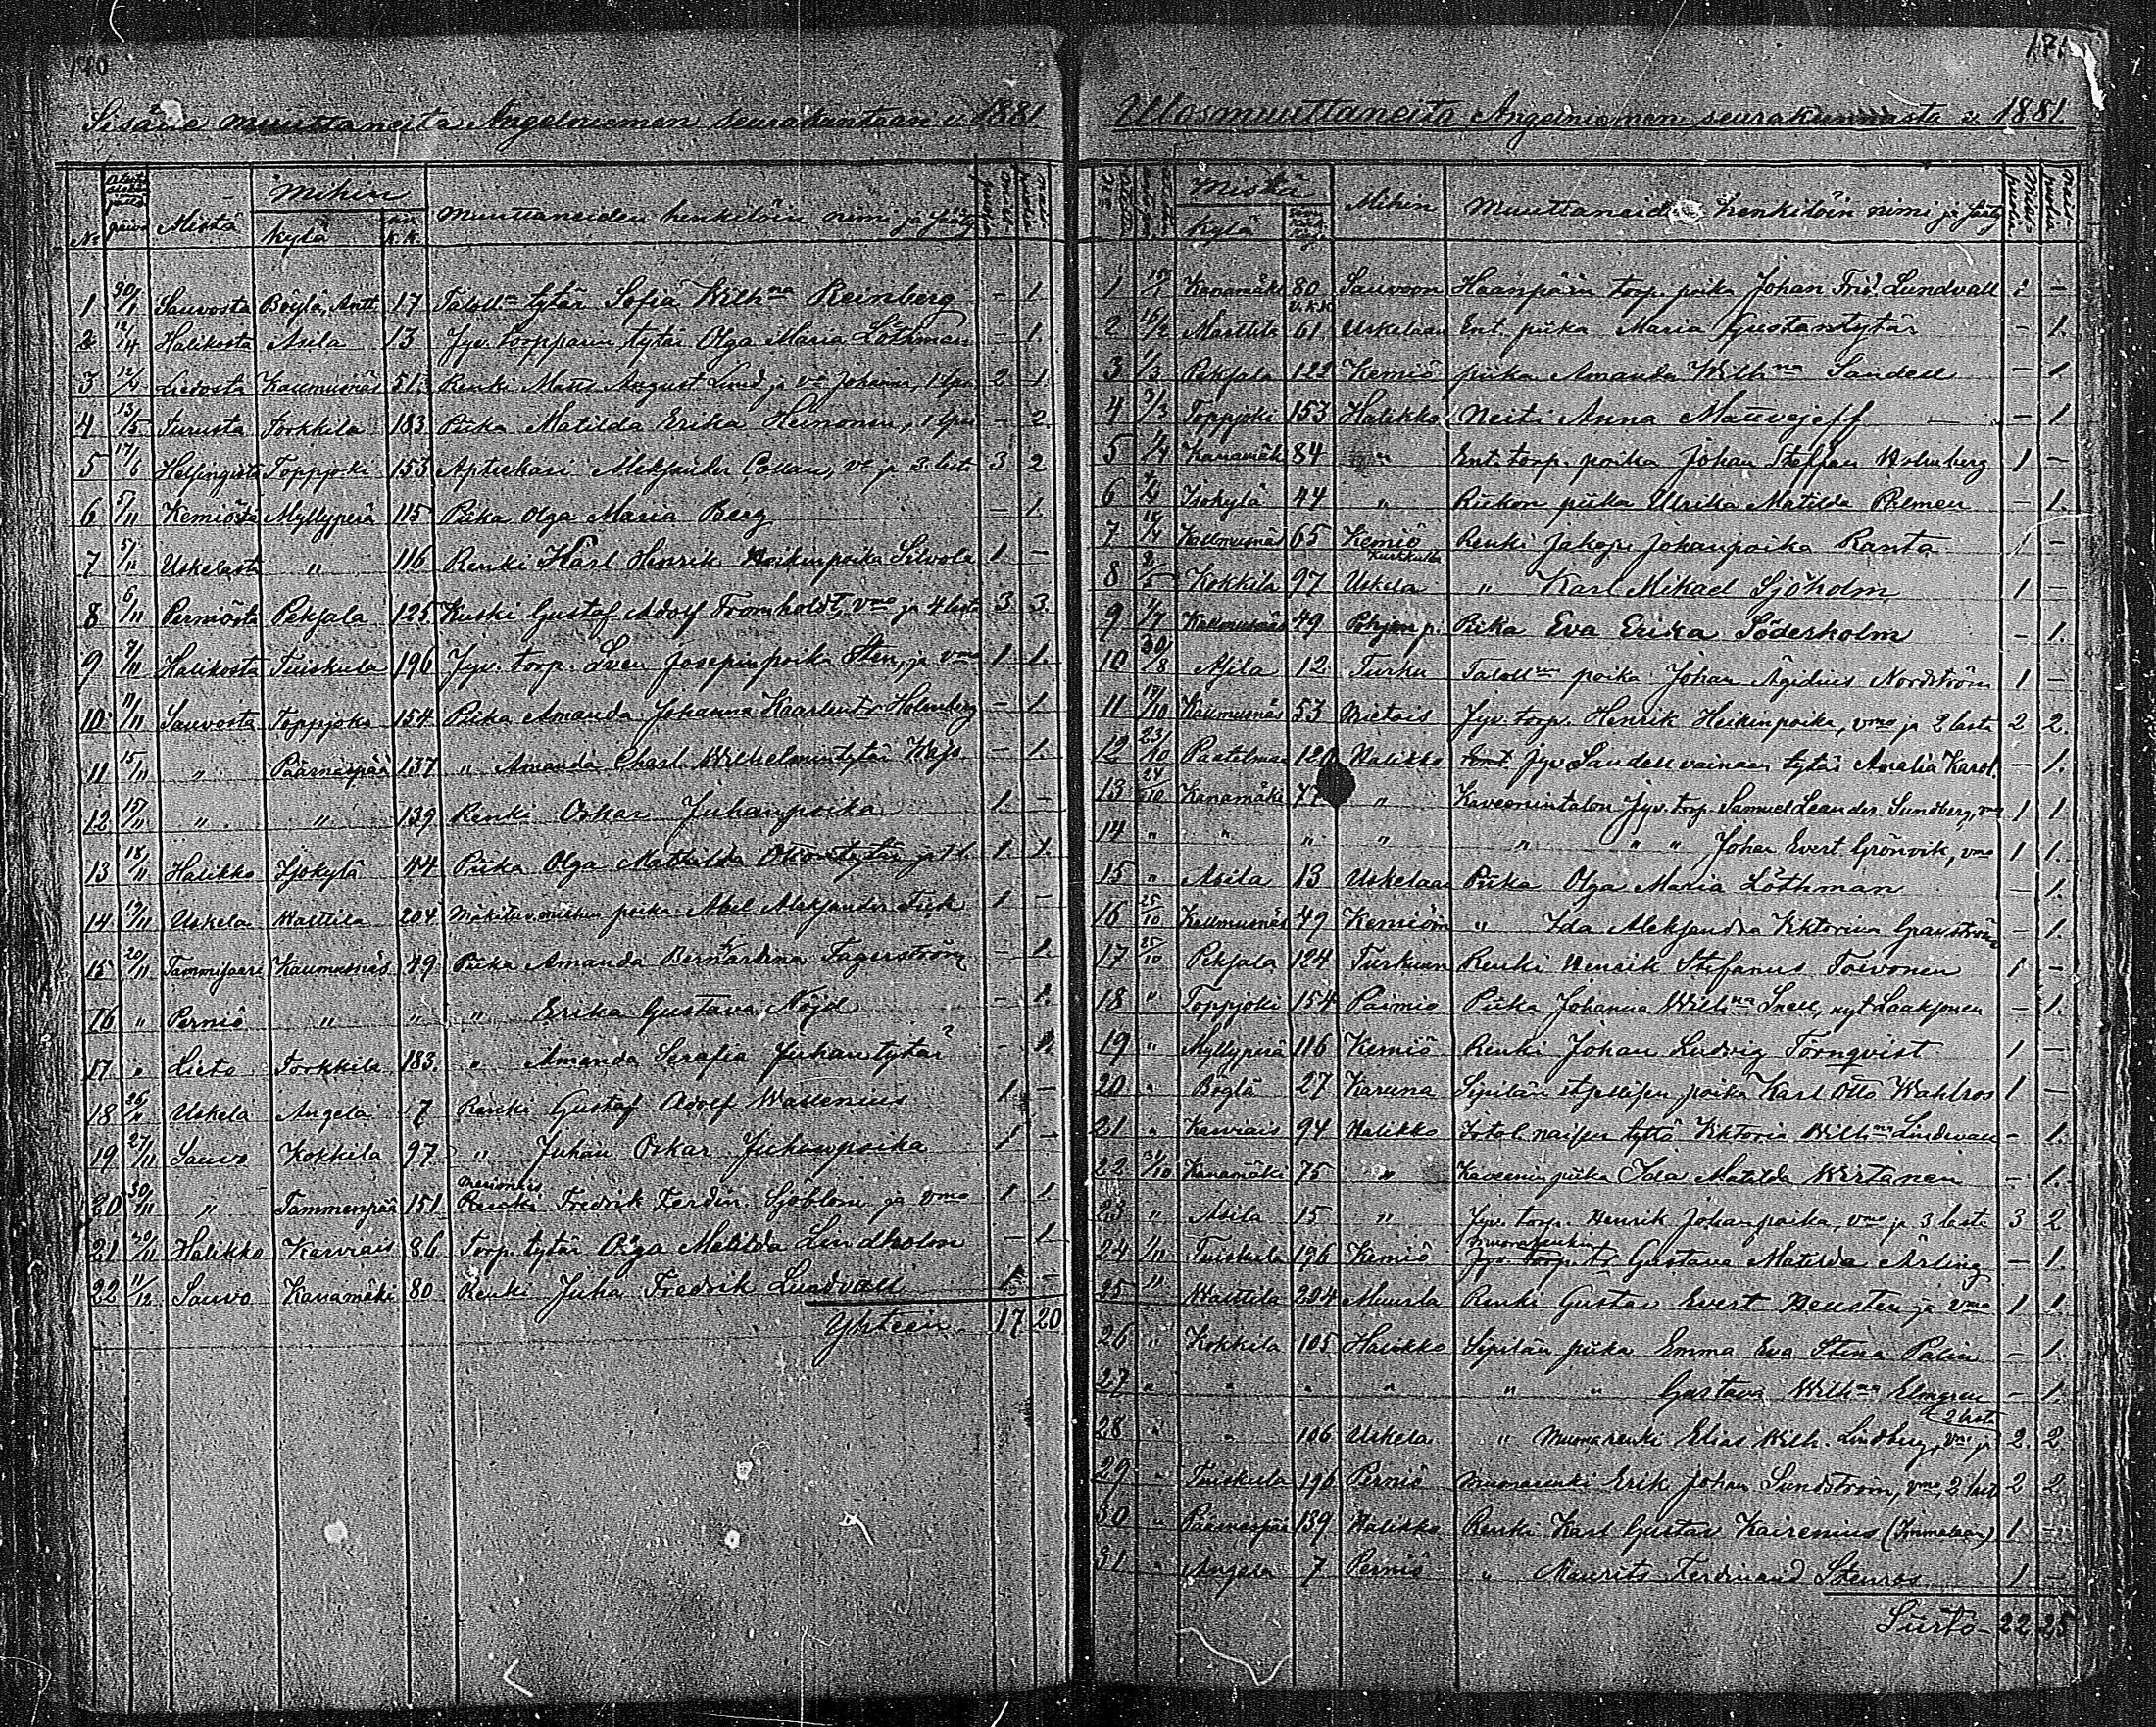 140
Sisään muuttaneita Angelniemen seurakuntaan v. 1881
No päivä Mistä Mihin kylä Muuttaneiden henkilöin nimi ja sääty
1 30/1 Sauvosta Böylä, Antt. 17 Taloll:n tytär Sofia Wilh:na Reinberg - 1.
2 12/4 Halikosta Asila 13 Jyv. torpparin tytär Olga Maria Löthman - 1.
3 Liedosta Kaumusnäs 51. Renki Matts August Lund ja v:o Johanna, 1 lapsi 2 1.
4 13/5 Turusta Torkkila 183 Piika Matilda Erika Heinonen, 1 lapsi - 2.
5 17/6 Helsingistä Toppjoki 153 Apteekari Aleksander Collan, v:o ja 3 lasta 3 2
6 5/11 Kemiöstä Myllyperä 115 Piika Olga Maria Berg - 1.
7 5/11 Uskelasta " 116 Renki Karl Henrik Heikinpoika Silvola 1. -
8 6/11 Perniöstä Pekjala 125 Kuski Gustaf Adolf Fromholdt, v:mo ja 4 lasta 3 3.
9 7/11 Halikosta Tuiskula 196 Jyv. torp. Sven Josepinpoika Sten, ja v:mo 1 1.
10 11/11 Sauvosta Toppjoki 154 Piika Amanda Johanna Kaarlent:r Holmberg - 1.
11 15/11 " Päärnäspää 137 " Amanda Charl. Wilhelmintytär - 1.
12 15/11 " " 139 Renki Oskar Juhanpoika 1. -
13 18/11 Halikko Isokylä 44 Piika Olga Mathilda Ottontytär ja 1 l. 1. 1.
14 19/11 Uskela Walttila 204 Mäkituv. miehen poika Abel Aleksander 1 -
15 20/11 Tammisaari Kaumusnäs 49 Piika Amanda Bernardina Fagerström - 1.
16 " Perniö " " " Erika Gustava Nöjd - 1.
17 " Lieto Torkkila 183. " Amanda Serafia Juhantytär - 1.
18 26/11 Uskela Angela 7 Renki Gustaf Adolf Wallenius 1 -
19 27/11 Sauvo Kokkila 97 " Juhan Oskar Juhanpoika 1 -
20 30/11 " Tammenpää 151 Renki Fredrik Ferdin. Sjöblom ja v:mo 1 1
21 30/11 Halikko Karviais 86 Torp. tytär Olga Matilda Lindholm - 1
22 11/12 Sauvo Kanamäki 80 Renki Juha Fredrik Lundvall 1 -
Yhteen 17 20
171
Ulosmuuttaneita Angelniemen seurakunnasta v. 1881.
Mistä Kylä Mihin Muuttaneiden henkilöin nimi ja sääty
1 15/1 Kanamäki 80 Sauvoon Haanpään torp. poika Johan Frid. Lundvall 1 -
2 16/2 Marttila 61. Uskelaan Ent. piika Maria Gustantytär - 1.
3 1/3 Pekjala 122 Kemiö piika Amanda Wilh:na Sandell - 1.
4 9/3 Toppjoki 153 Halikko Neiti Anna Matwejeff - 1
5 1/4 Kanamäki 84 " Ent. torp. poika Johan Steffan Holmberg 1 -
6 Isokylä 44 " Ruekon piika Ulrika Matilda Palmen - 1.
7 15/4 Kallmusnäs 65 Kemiö Renki Jakop Johanpoika Ranta 1 -
8 Kokkila 97 Uskela " Karl Mikael Sjöholm 1 -
9 1/7 Kallmusnäs 49 Pohjan p. Piika Eva Erika Söderholm - 1.
10 30/8 Asila 12. Turku Taloll:sen poika Johan Ägidius Nordström 1 -
11 19/10 Kaumusnäs 53 Mietois Jyv. torp. Henrik Heikinpoika, v:mo ja 2 lasta 2 2.
12 23/10 120 Halikko Ent. Jyv Sandell vainaan tytär Amalia Karol. - 1.
13 24/10 Kanamäki 77 " Kaveeninталon Jyv. torp. Samuel Leander Sundberg, v:mo 1 1
14 " " " " " " Johan Evert Grönvik, v:mo 1 1.
15 " Asila 13 Uskelaan Piika Olga Maria Löthman - 1.
16 25/10 Kallmusnäs 49 Kemiöön " Ida Aleksandra Viktorina Granström - 1.
17 25/10 Pekjala 124 Turkuun Renki Henrik Stefanus Toivonen 1 -
18 " Toppjoki 154 Paimio Piika Johanna Wilh:na Snell, nyt Laaksonen - 1.
19 " Myllyperä 116 Kemiö Renki Johan Ludvig Törnqvist 1 -
20 " Böylä 27 Karuna Sipilän poika Karl Otto Wahlros 1 -
21 " Karviais 94 Halikko Itsell. naisen tyttö Viktoria Wilh:na Lindwall - 1.
22 31/10 Kanamäki 75 " Kaveenin piika Ida Matilda Wirtanen - 1.
23 " Asila 15 " Jyv. torp. Henrik Johanpoika, v:mo ja 3 lasta 3 2
24 1/11 Tuiskula 196 Kemiö Gustava Matilda Ärling - 1.
25 " Walttila 204 Muurla Renki Gustav Evert Heusten ja v:mo 1 1.
26 " Kokkila 105 Halikko Sipilän piika Emma Eva Stina Palin - 1.
27 " " " " " " Gustava Wilh:na Elmgren - 1.
28 " " 106 Uskela " Muonarenki Elias Wilh. Lindberg, v:mo ja 2 lasta 2. 2
29 " Tuiskula 196 Perniö Muonarenki Erik Johan Sundström, v:mo, 2 last 2 2
30 " Päärnäspää 139 Halikko Renki Karl Gustav Kairenius (Immelaan) 1 -
31 " Angela 7 Perniö " Maurits Ferdinand Stenros 1 -
Siirto 22 25